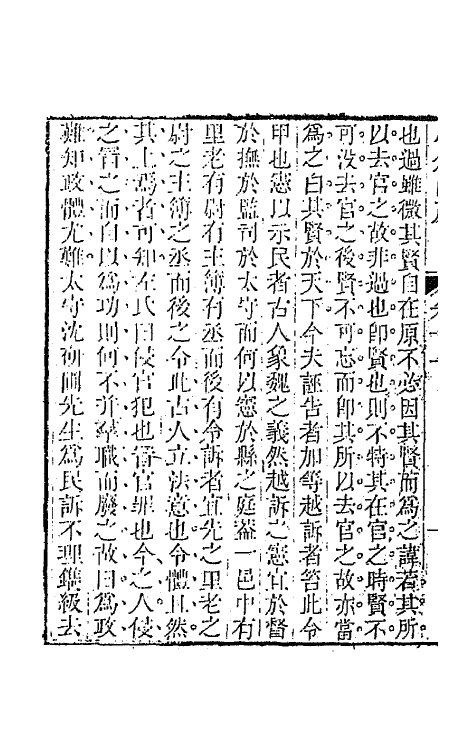 也過雖微其賢自在原不必因其賢而為之諱若其所
以去官之故非過也卽賢也則不特其在官之時賢不
可沒去官之後賢不可忘而卽其所以去官之故亦當
為之白其賢於天下今夫誣告者加等越訴者笞此令
甲也憲以示民者古人象魏之義然越訴之憲宜於督
於撫於監司於太守而何以憲於縣之庭蓋一邑中有
里老有尉有主簿有丞而後有令訴者宜先之里老之
尉之主簿之丞而後之令此古人立法意也令體且然
其上焉者可知左氏曰侵官犯也冒官罪也今之人侵
之冒之而自以為功則何不并羣職而廢之故曰為政
難知政體尤難太守沈朝間先生為民訴不理鐫級去